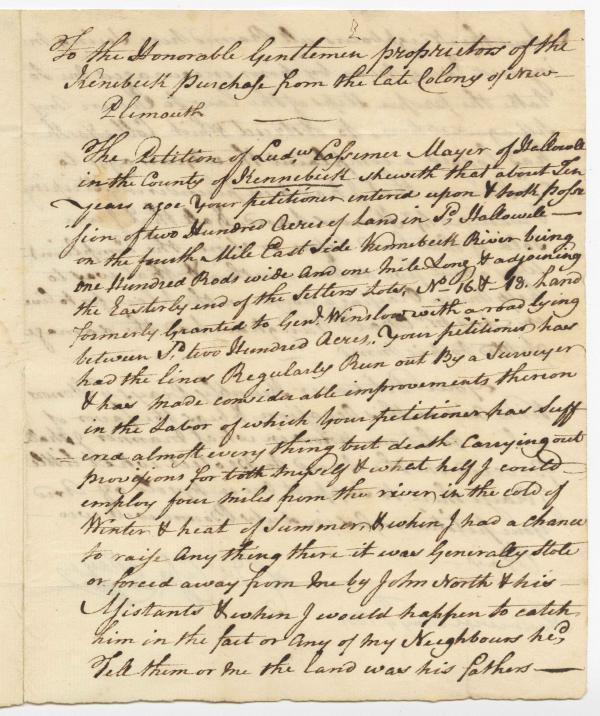 To the Honorable Gentlemen proprietors of the
Kenebeck Purchase from the late Colony of New
Plimouth
The Petition of Ludw Cassimer Mayer of Hallowell
in the County of Kennebeck sheweth that about Ten
Years agoe Your petitioner entered upon & took posse
sion of two Hundred Acres of Land in Sd Hallowell
on the fourth Mile East Side Kinnebeck River being
one Hundred Rods wide And one Mile Long & adjoining
the Easterly end of the Setlers Lots, No 16 & 18. Land
formerly Granted to Genl Winslow with a road lying
between Sd two Hundred Acres. Your petitioner has
had the lines Regularly Run out By a Surveyer
& has made considerable improvements thereon
in the Labor of which Your petitioner has Suff
ered almost every thing but death Carrying out
provisions for both myself & what help I could
employ four miles from the river, in the cold of
Winter & heat of Summer, & when I had a chance
to raise Any thing there it was Generally Stole
or forced away from me by John North & his
Asistants & when I would happen to catch
him in the fact or Any of my Neighbours he'd
Tell them or me the land was his fathers